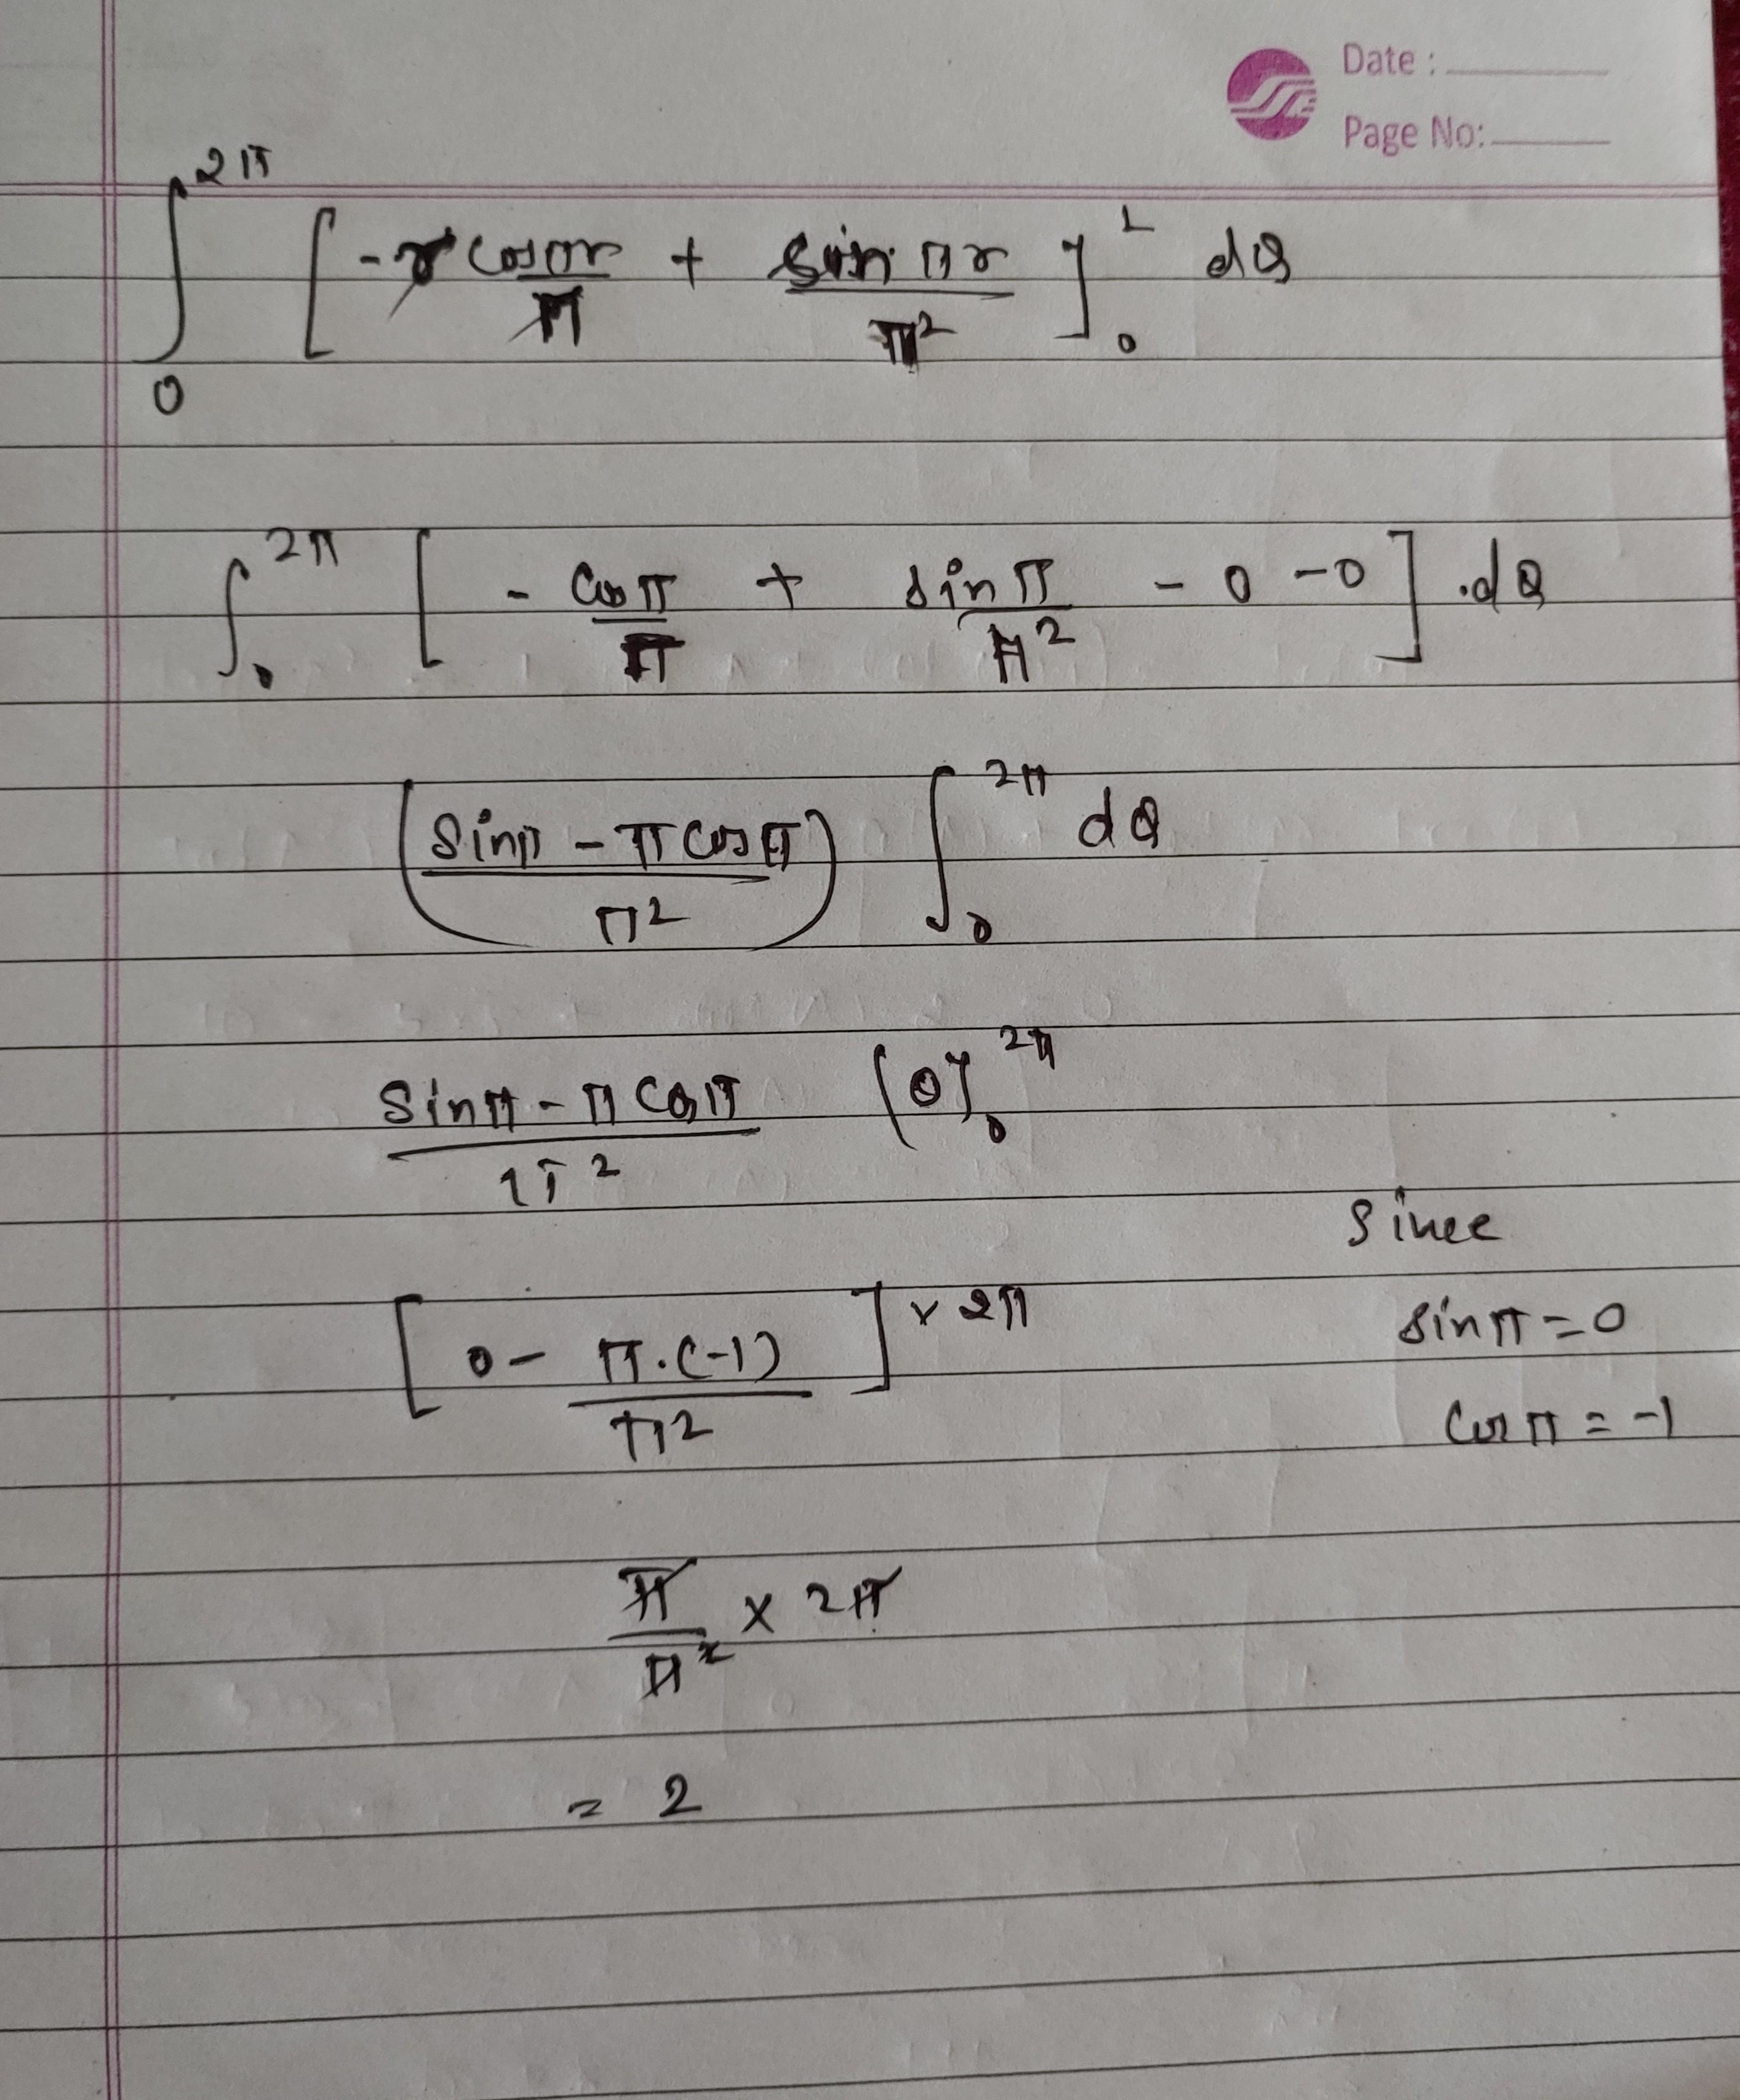 Date :
Page No:
∫₀^2π [ -r cosπr/π + sin πr/π² ]₀^1 dθ
∫₀^2π [ - cosπ/π + sinπ/π² - 0 - 0 ] . dθ
( sinπ - π cosπ / π² ) ∫₀^2π dθ
sinπ - π cosπ / π² [θ]₀^2π
since
[ 0 - π.(-1)/π² ] × 2π
sinπ = 0
cosπ = -1
π/π² × 2π
= 2